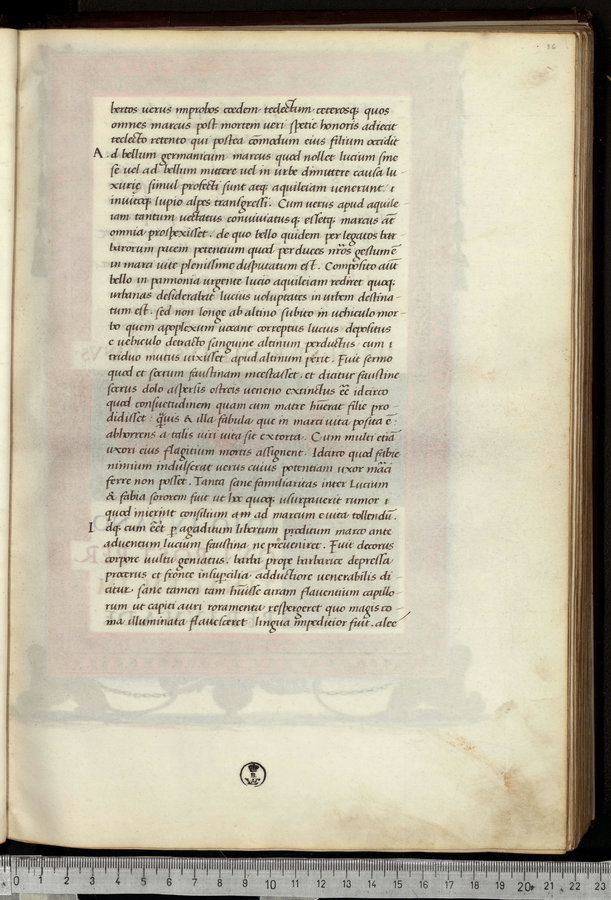 36
bertos uerus improbos credem teclectum ceterosq; quos
omnes marcus post mortem ueri spetie honoris adiecit
teclecto retento qui postea cōmodum eius filium occidit
A.d bellum germanicum marcus quod nollet lucium sine
se uel ad bellum mittere uel in urbe dimittere causa lu-
xurię simul profecti sunt atq; aquileiam uenerunt. i
inuitoq; lupio alpes transgressi. Cum uerus apud aquile
iam tantum uectatus conuiuiatusq; essetq; marcus at
omnia prospexisset. de quo bello quidem per legatos bar-
barorum pacem petentium quod per duces nr̄os gestum ē
in marci uite plenissime disputatum est. Composito aūt
bello in pannonia urgente lucio aquileiam rediret quoq;
urbanas desiderabat lucius uoluptates in urbem destina-
tum est. sed non longe ab altino subito in uehiculo mor
bo quem apoplexum uocant correptus lucius depositus
e uehiculo detracto sanguine altinum perductus cum i
triduo mutus uixisset apud altinum perit. Fuit sermo
quod et socrum faustinam incestasset. et dicitur faustine
socrus dolo aspersis ostreis ueneno extinctus eē idcirco
quod consuetudinem quam cum matre habuerat filie pro
didisset. q̄uis & illa fabula que in marci uita posita ē:
abhorrens a talis uiri uita sit extorta. Cum multi etiā
uxori eius flagitium mortis assignent. Idcirco quod fabie
nimium indulserat uerus cuius potentiam uxor marci
ferre non posset. Tanta sane familiaritas inter Lucium
& fabia sororem fuit ut hoc quoq; usurpauerit rumor i
quod inierint consilium am ad marcum e uita tollendū.
I dq; cum eēt p agaclitum libertum proditum marco ante
aduentum lucium faustina ne preueniret. Fuit decorus
corpore uultu geniatus. barba prope barbarice depressa
procerus et fronte insupcilia adductiore uenerabilis di
citur sane tamen tam habuisse curam flauentium capillo
rum ut capiti auri roramenta respergeret quo magis co-
ma illuminata flauesceret lingua impeditior fuit. alee
0 1 2 3 4 5 6 7 8 9 10 11 12 13 14 15 16 17 18 19 20 21 22 23